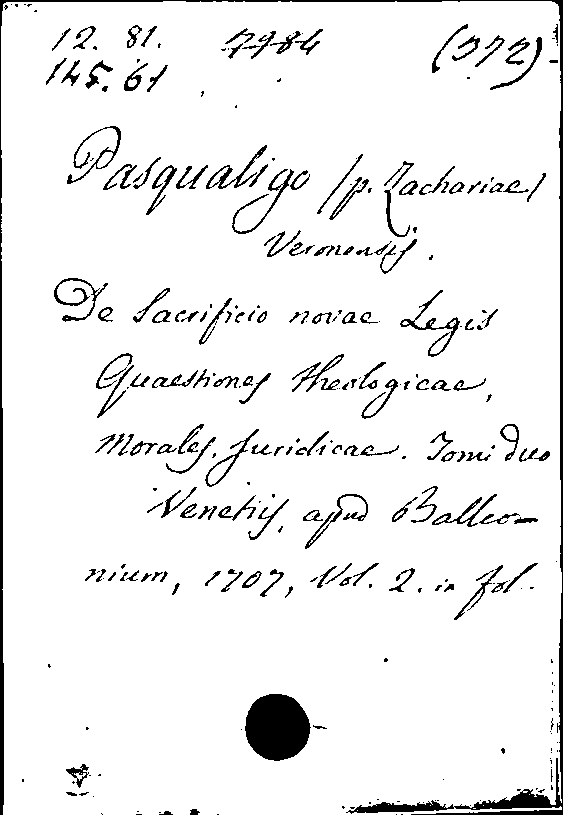 12. 81. 7984 (372)
145. 61
Pasqualigo /p. Zachariae/
Veronensis.
De Sacrificio novae Legis
Quaestiones theologicae,
Morales, Juridicae. Tomi duo
Venetiis, apud Balleo-
nium, 1707, Vol. 2. in fol.